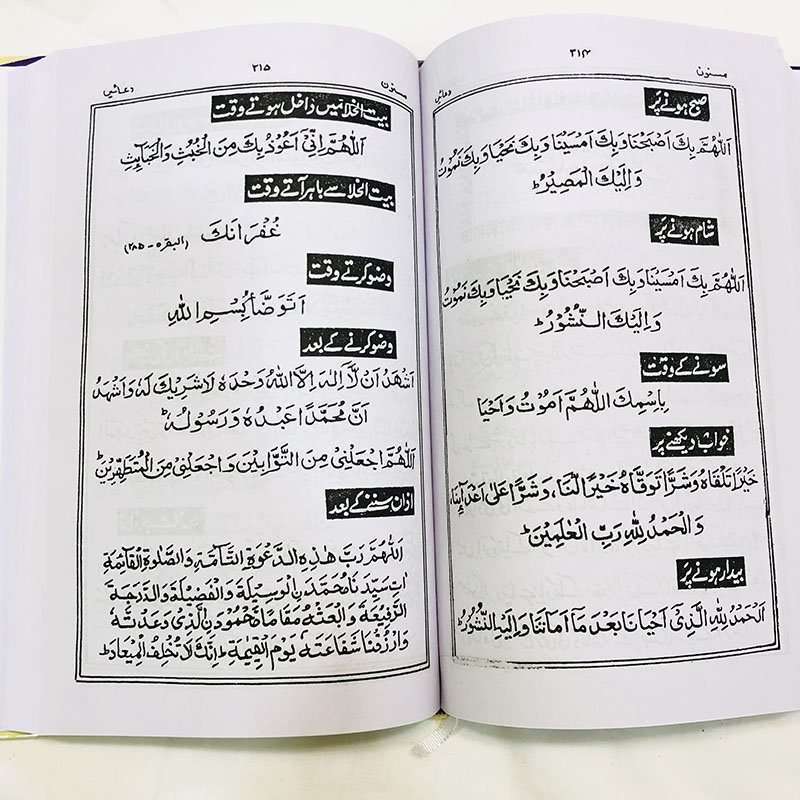 ۳۱۴
مسنون
دعائیں
صبح ہونے پر
اَللّٰهُمَّ بِكَ اَصْبَحْنَا وَبِكَ اَمْسَيْنَا وَبِكَ نَحْيَا وَبِكَ نَمُوْتُ
وَاِلَيْكَ الْمَصِيْرُ ط
شام ہونے پر
اَللّٰهُمَّ بِكَ اَمْسَيْنَا وَبِكَ اَصْبَحْنَا وَبِكَ نَحْيَا وَبِكَ نَمُوْتُ
وَاِلَيْكَ النُّشُوْرُ ط
سونے کے وقت
بِاسْمِكَ اللّٰهُمَّ اَمُوْتُ وَاَحْيَا
خواب دیکھنے پر
خَيْرًا تَلْقَاهُ وَشَرًّا تَوَقَّاهُ خَيْرًا لَّنَا، وَشَرًّا عَلٰى اَعْدَآئِنَا،
وَالْحَمْدُ لِلّٰهِ رَبِّ الْعٰلَمِيْنَ ط
بیدار ہونے پر
اَلْحَمْدُ لِلّٰهِ الَّذِيْٓ اَحْيَانَا بَعْدَ مَآ اَمَاتَنَا وَاِلَيْهِ النُّشُوْرُ ط
۳۱۵
مسنون
دعائیں
بیت الخلا میں داخل ہوتے وقت
اَللّٰهُمَّ اِنِّيْٓ اَعُوْذُ بِكَ مِنَ الْخُبُثِ وَالْخَبَآئِثِ
بیت الخلا سے باہر آتے وقت
غُفْرَانَكَ (البقره - ۲۸۵)
وضو کرتے وقت
اَتَوَضَّأُ بِسْمِ اللّٰهِ
وضو کرنے کے بعد
اَشْهَدُ اَنْ لَّآ اِلٰهَ اِلَّا اللّٰهُ وَحْدَهٗ لَا شَرِيْكَ لَهٗ وَاَشْهَدُ
اَنَّ مُحَمَّدًا عَبْدُهٗ وَرَسُوْلُهٗ ط
اَللّٰهُمَّ اجْعَلْنِيْ مِنَ التَّوَّابِيْنَ وَاجْعَلْنِيْ مِنَ الْمُتَطَهِّرِيْنَ ط
اذان سننے کے بعد
اَللّٰهُمَّ رَبَّ هٰذِهِ الدَّعْوَةِ التَّآمَّةِ وَالصَّلٰوةِ الْقَآئِمَةِ
اٰتِ سَيِّدَنَا مُحَمَّدَ نِ الْوَسِيْلَةَ وَالْفَضِيْلَةَ وَالدَّرَجَةَ
الرَّفِيْعَةَ وَابْعَثْهُ مَقَامًا مَّحْمُوْدَ نِ الَّذِيْ وَعَدْتَّهٗ
وَارْزُقْنَا شَفَاعَتَهٗ يَوْمَ الْقِيٰمَةِ ط اِنَّكَ لَا تُخْلِفُ الْمِيْعَادَ ط